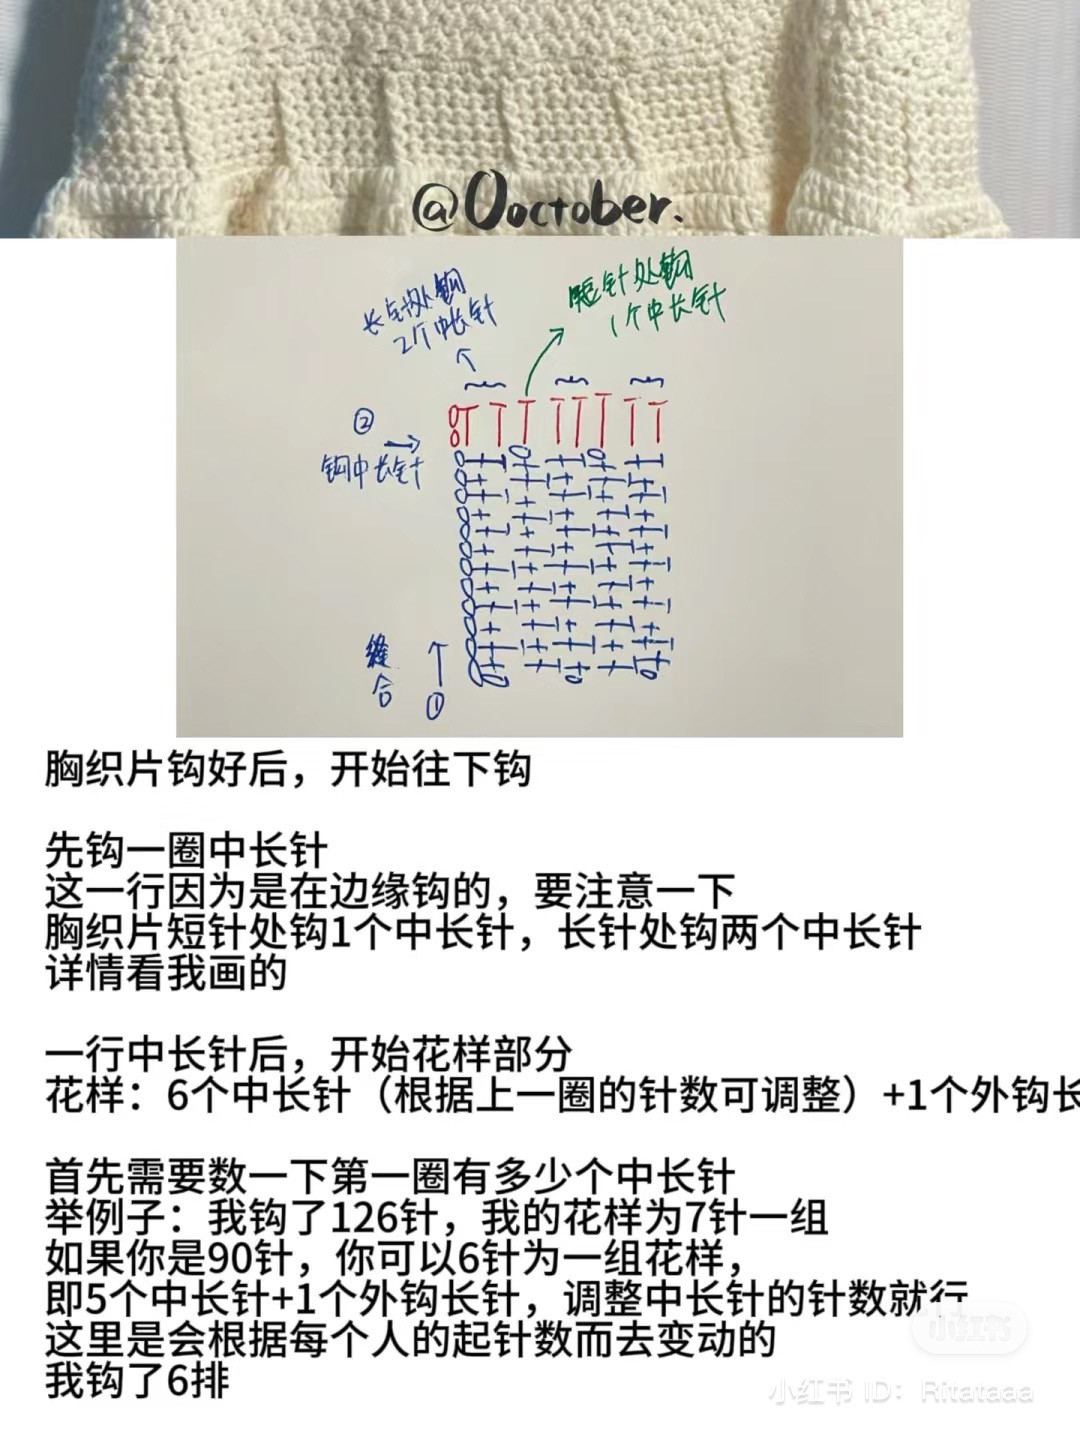 @Ooctober.
长针处钩
2个中长针
短针处钩
1个中长针
②
钩中长针
缝
合
①
胸织片钩好后，开始往下钩
先钩一圈中长针
这一行因为是在边缘钩的，要注意一下
胸织片短针处钩1个中长针，长针处钩两个中长针
详情看我画的
一行中长针后，开始花样部分
花样：6个中长针（根据上一圈的针数可调整）+1个外钩长
首先需要数一下第一圈有多少个中长针
举例子：我钩了126针，我的花样为7针一组
如果你是90针，你可以6针为一组花样，
即5个中长针+1个外钩长针，调整中长针的针数就行
这里是会根据每个人的起针数而去变动的
我钩了6排
小红书
小红书 ID：Ritataaa